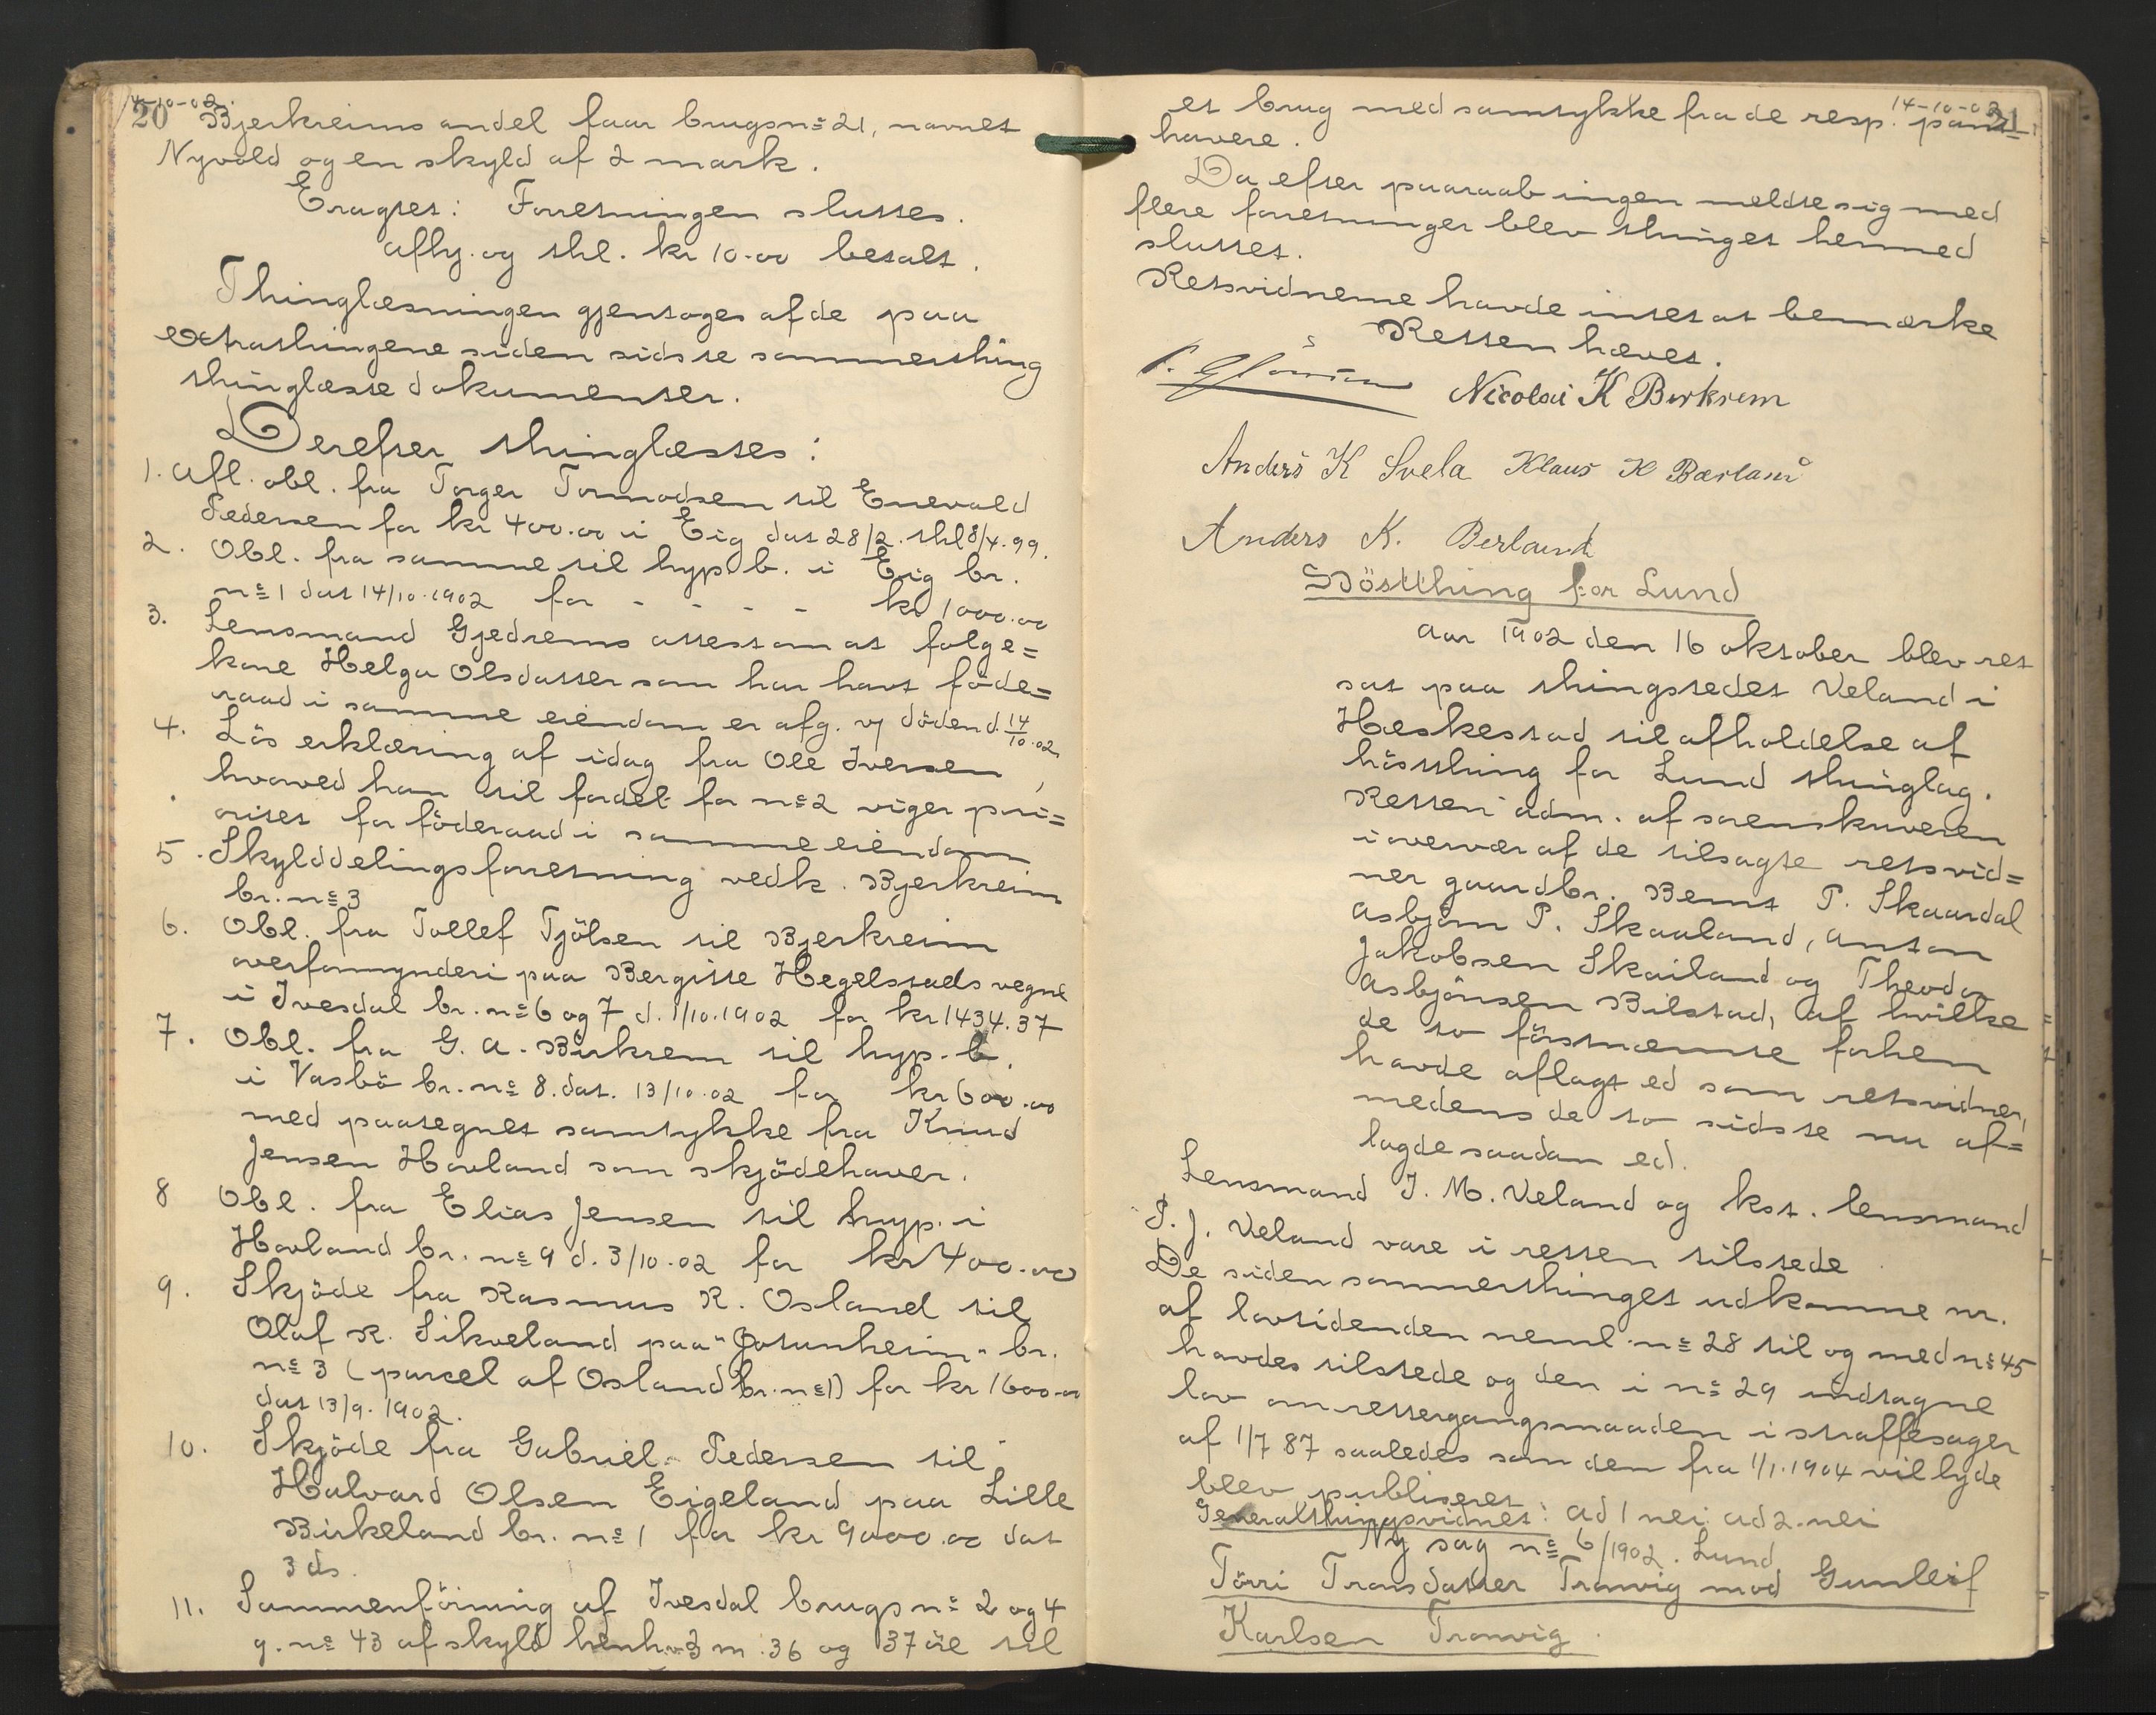 14-10-02.
20 Bjerkreims andel faar brugsno 21, navnet
Nyvold og en skyld af 2 mark.
Eragtet: Forretningen sluttes.
afhj. og thl. kr 10.00 betalt.
Thinglæsningen gjentoges af de paa
extrathingene siden sidste sommerthing
thinglæste dokumenter.
Derefter thinglæstes:
1. Afl. obl. fra Torger Tormodsen til Enevald
Pedersen for kr 400.00 i Eig dat 28/2. thl 8/4.99.
2. Obl. fra samme til hyp. b. i Eig br.
no 1 dat 14/10.1902 for - - - - kr 1000.00
3. Lensmand Gjedrems attest om at folge=
kone Helga Olsdatter som har havt föde=
raad i samme eiendom er afg. v döden d. 14/10.02
4. Lös erklæring af idag fra Ole Iversen,
hvorved han til fordel for no 2 viger pri=
oritet for föderaad i samme eiendom
5. Skylddelingsforretning vedk. Bjerkreim
br. no 3
6. Obl. fra Tollef Tjölsen til Bjerkreim
overformynderi paa Bergitte Hegelstads vegne
i Ivesdal br. no 6 og 7 d. 1/10.1902 for kr 1434.37
7. Obl. fra G. A. Birkrem til hyp. b.
i Vasbö br. no 8. dat. 13/10.02 for kr 600.00
med paategnet samtykke fra Knud
Jensen Hovland som skjödehaver.
8 Obl. fra Elias Jensen til hyp. i
Hovland br. no 9 d. 3/10.02 for kr 400.00
9. Skjöde fra Rasmus R. Osland til
Olaf R. Sikveland paa "Jotunheim" br.
no 3 (parcel af Osland br. no 1) for kr 1600.00
dat 13/9.1902.
10. Skjöde fra Gabriel Pedersen til
Halvard Olsen Eigeland paa Lille
Birkeland br. no 1 for kr 9000.00 dat
3 ds.
11. Sammenföining af Ivesdal brugs no 2 og 4
g. no 43 af skyld henhv 3 m. 36 og 37 öre til
14-10-02
21
et brug med samtykke fra de resp. pant=
havere.
Da efter paaraab ingen meldte sig med
flere forretninger blev thinget hermed
sluttet.
Retsvidnerne havde intet at bemærke
Retten hævet.
Nicolai K Birkrem
Anders K Svela Klaus K Bærland
Anders K. Berland
Höstthing for Lund
Aar 1902 den 16 oktober blev ret
sat paa thingstedet Veland i
Heskestad til afholdelse af
hösthing for Lund thinglag.
Retten adm. af sorenskriveren
i overvær af de tilsagte retsvid=
ner gaardbr. Bernt P. Skaardal
Asbjörn P. Skaaland, Anton
Jakobsen Skailand og Theodor
Asbjörnsen Bilstad, af hvilke
de to förstnævnte forhen
havde aflagt ed som retsvidner,
medens de to sidste nu af=
lagde saadan ed.
Lensmand J. M. Veland og kst. lensmand
P. J. Veland vare i retten tilstede
De siden sommerthinget udkomne nr.
af lovtidenden neml. no 28 til og med no 45
havdes tilstede og den i no 29 indtagne
lov om rettergangsmaaden i straffesager
af 1/7 87 saaledes som den fra 1/1.1904 vil lyde
blev publiseret.
Generalthingsvidnet: ad 1 nei ad 2. nei
Ny sag no 6/1902. Lund
Törri Tronsdatter Tronvig mod Gunleif
Karlsen Tronvig.